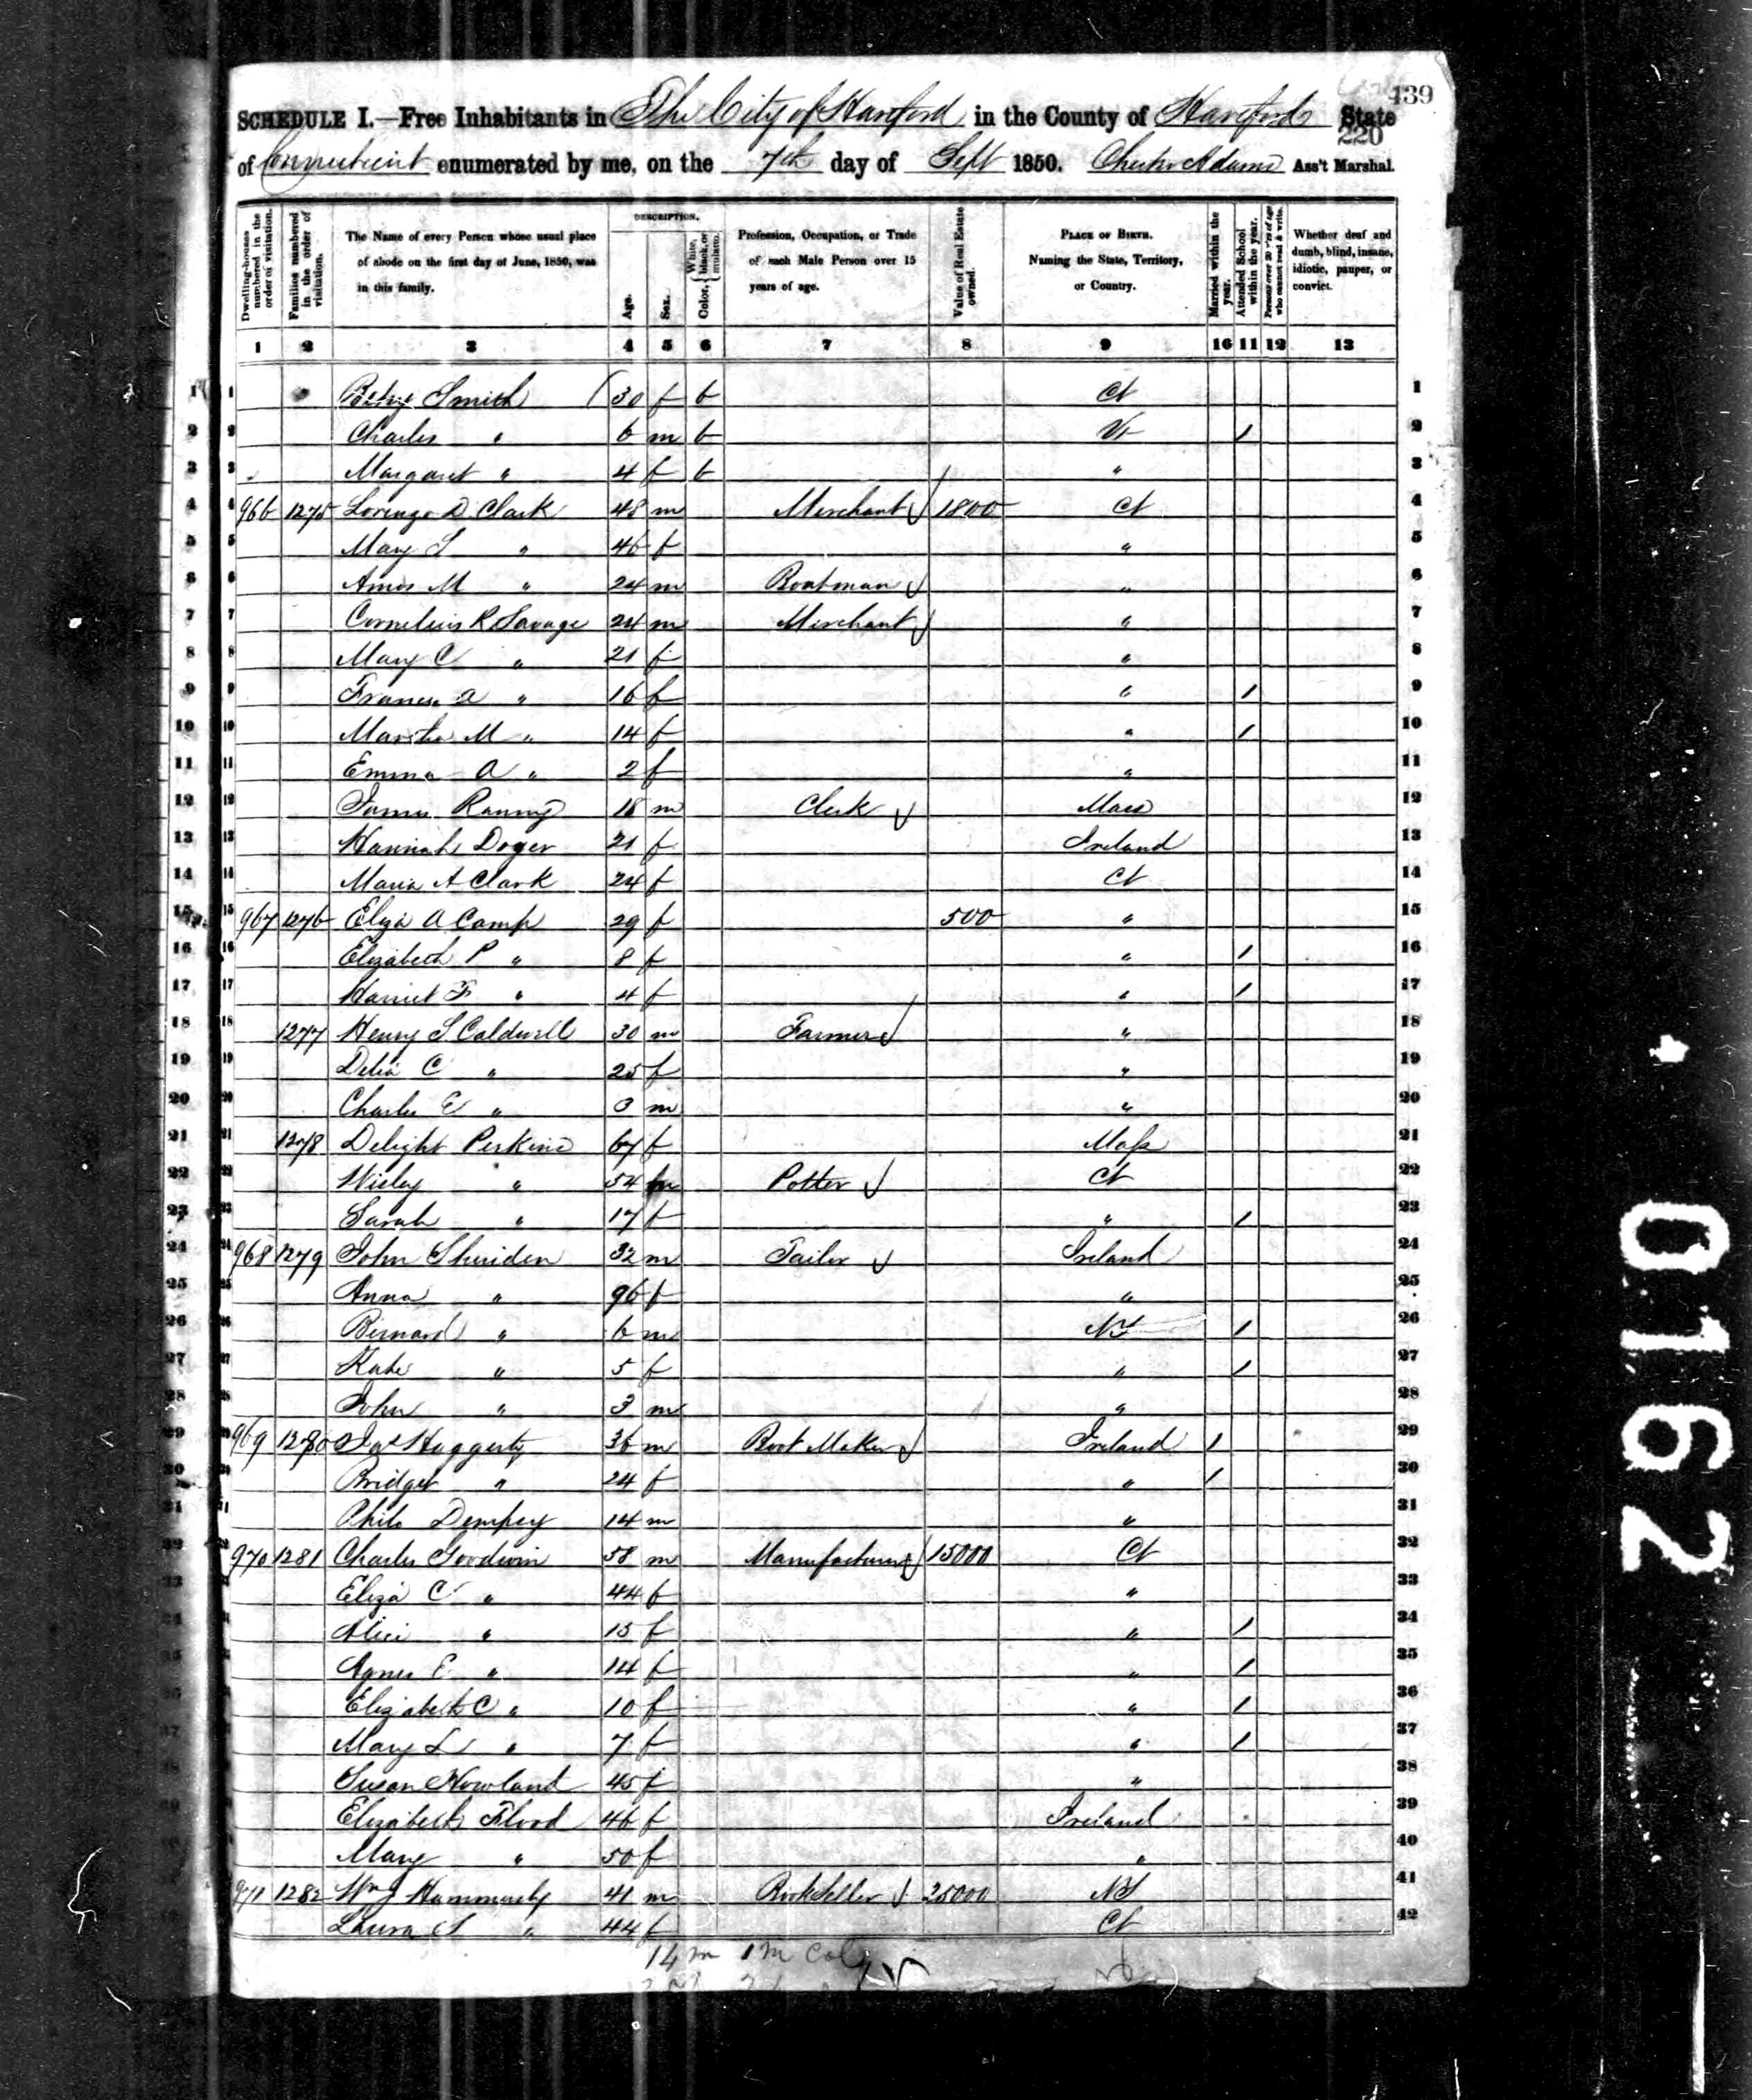 139
SCHEDULE I.—Free Inhabitants in The City of Hartford in the County of Hartford State
220
of Connecticut enumerated by me, on the 7th day of Sept 1850. Chester Adams Ass't Marshal.
Dwelling-houses numbered in the order of visitation. Families numbered in the order of visitation. The Name of every Person whose usual place of abode on the first day of June, 1850, was in this family. DESCRIPTION. Age. Sex. Color, { White, black, or mulatto. Profession, Occupation, or Trade of each Male Person over 15 years of age. Value of Real Estate owned. PLACE OF BIRTH. Naming the State, Territory, or Country. Married within the year. Attended School within the year. Persons over 20 y'rs of age who cannot read & write. Whether deaf and dumb, blind, insane, idiotic, pauper, or convict.
1 2 3 4 5 6 7 8 9 10 11 12 13
1 1 Betsy Smith 30 f b Ct 1
2 2 Charles " 6 m b Vt / 2
3 3 Margaret " 4 f b " 3
4 4 966 1275 Lorenzo D Clark 48 m Merchant 1800 Ct 4
5 5 Mary S " 46 f " 5
6 6 Amos M " 24 m Boatman " 6
7 7 Cornelius R Savage 24 m Merchant " 7
8 8 Mary C " 21 f " 8
9 9 Frances A " 16 f " / 9
10 10 Martha M " 14 f " / 10
11 11 Emma A " 2 f " 11
12 12 James Ranny 18 m Clerk Mass 12
13 13 Hannah Doyer 21 f Ireland 13
14 14 Maria A Clark 24 f Ct 14
15 15 967 1276 Eliza A Camp 29 f 500 " 15
16 16 Elizabeth P " 8 f " / 16
17 17 Harriet F " 4 f " / 17
18 18 1277 Henry S Caldwell 30 m Farmer " 18
19 19 Delia C " 25 f " 19
20 20 Charles E " 3 m " 20
21 21 1278 Delight Perkins 67 f Mass 21
22 22 " 54 m Potter Ct 22
23 23 Sarah " 17 f " / 23
24 24 968 1279 John Sheriden 32 m Tailor Ireland 24
25 25 Anna " 96 f " 25
26 26 Bernard " 6 m NY / 26
27 27 Kate " 5 f " / 27
28 28 John " 3 m " 28
29 969 1280 Jas Haggerty 36 m Boot Maker Ireland / 29
30 Bridget " 24 f " / 30
31 Philo Dempsey 14 m " 31
970 1281 Charles Goodwin 58 m Manufacturer 15000 Ct 32
33 Eliza C " 44 f " 33
Alice " 15 f " / 34
35 Agnes E " 14 f " / 35
Elizabeth C " 10 f " / 36
37 Mary L " 7 f " / 37
Susan Howland 45 f " 38
Elizabeth Flood 46 f Ireland 39
Mary " 50 f " 40
971 1282 Wm J Hammersly 41 m Bookseller 25000 NY 41
Laura S " 44 f Ct 42
14 m 1 m Col
0162